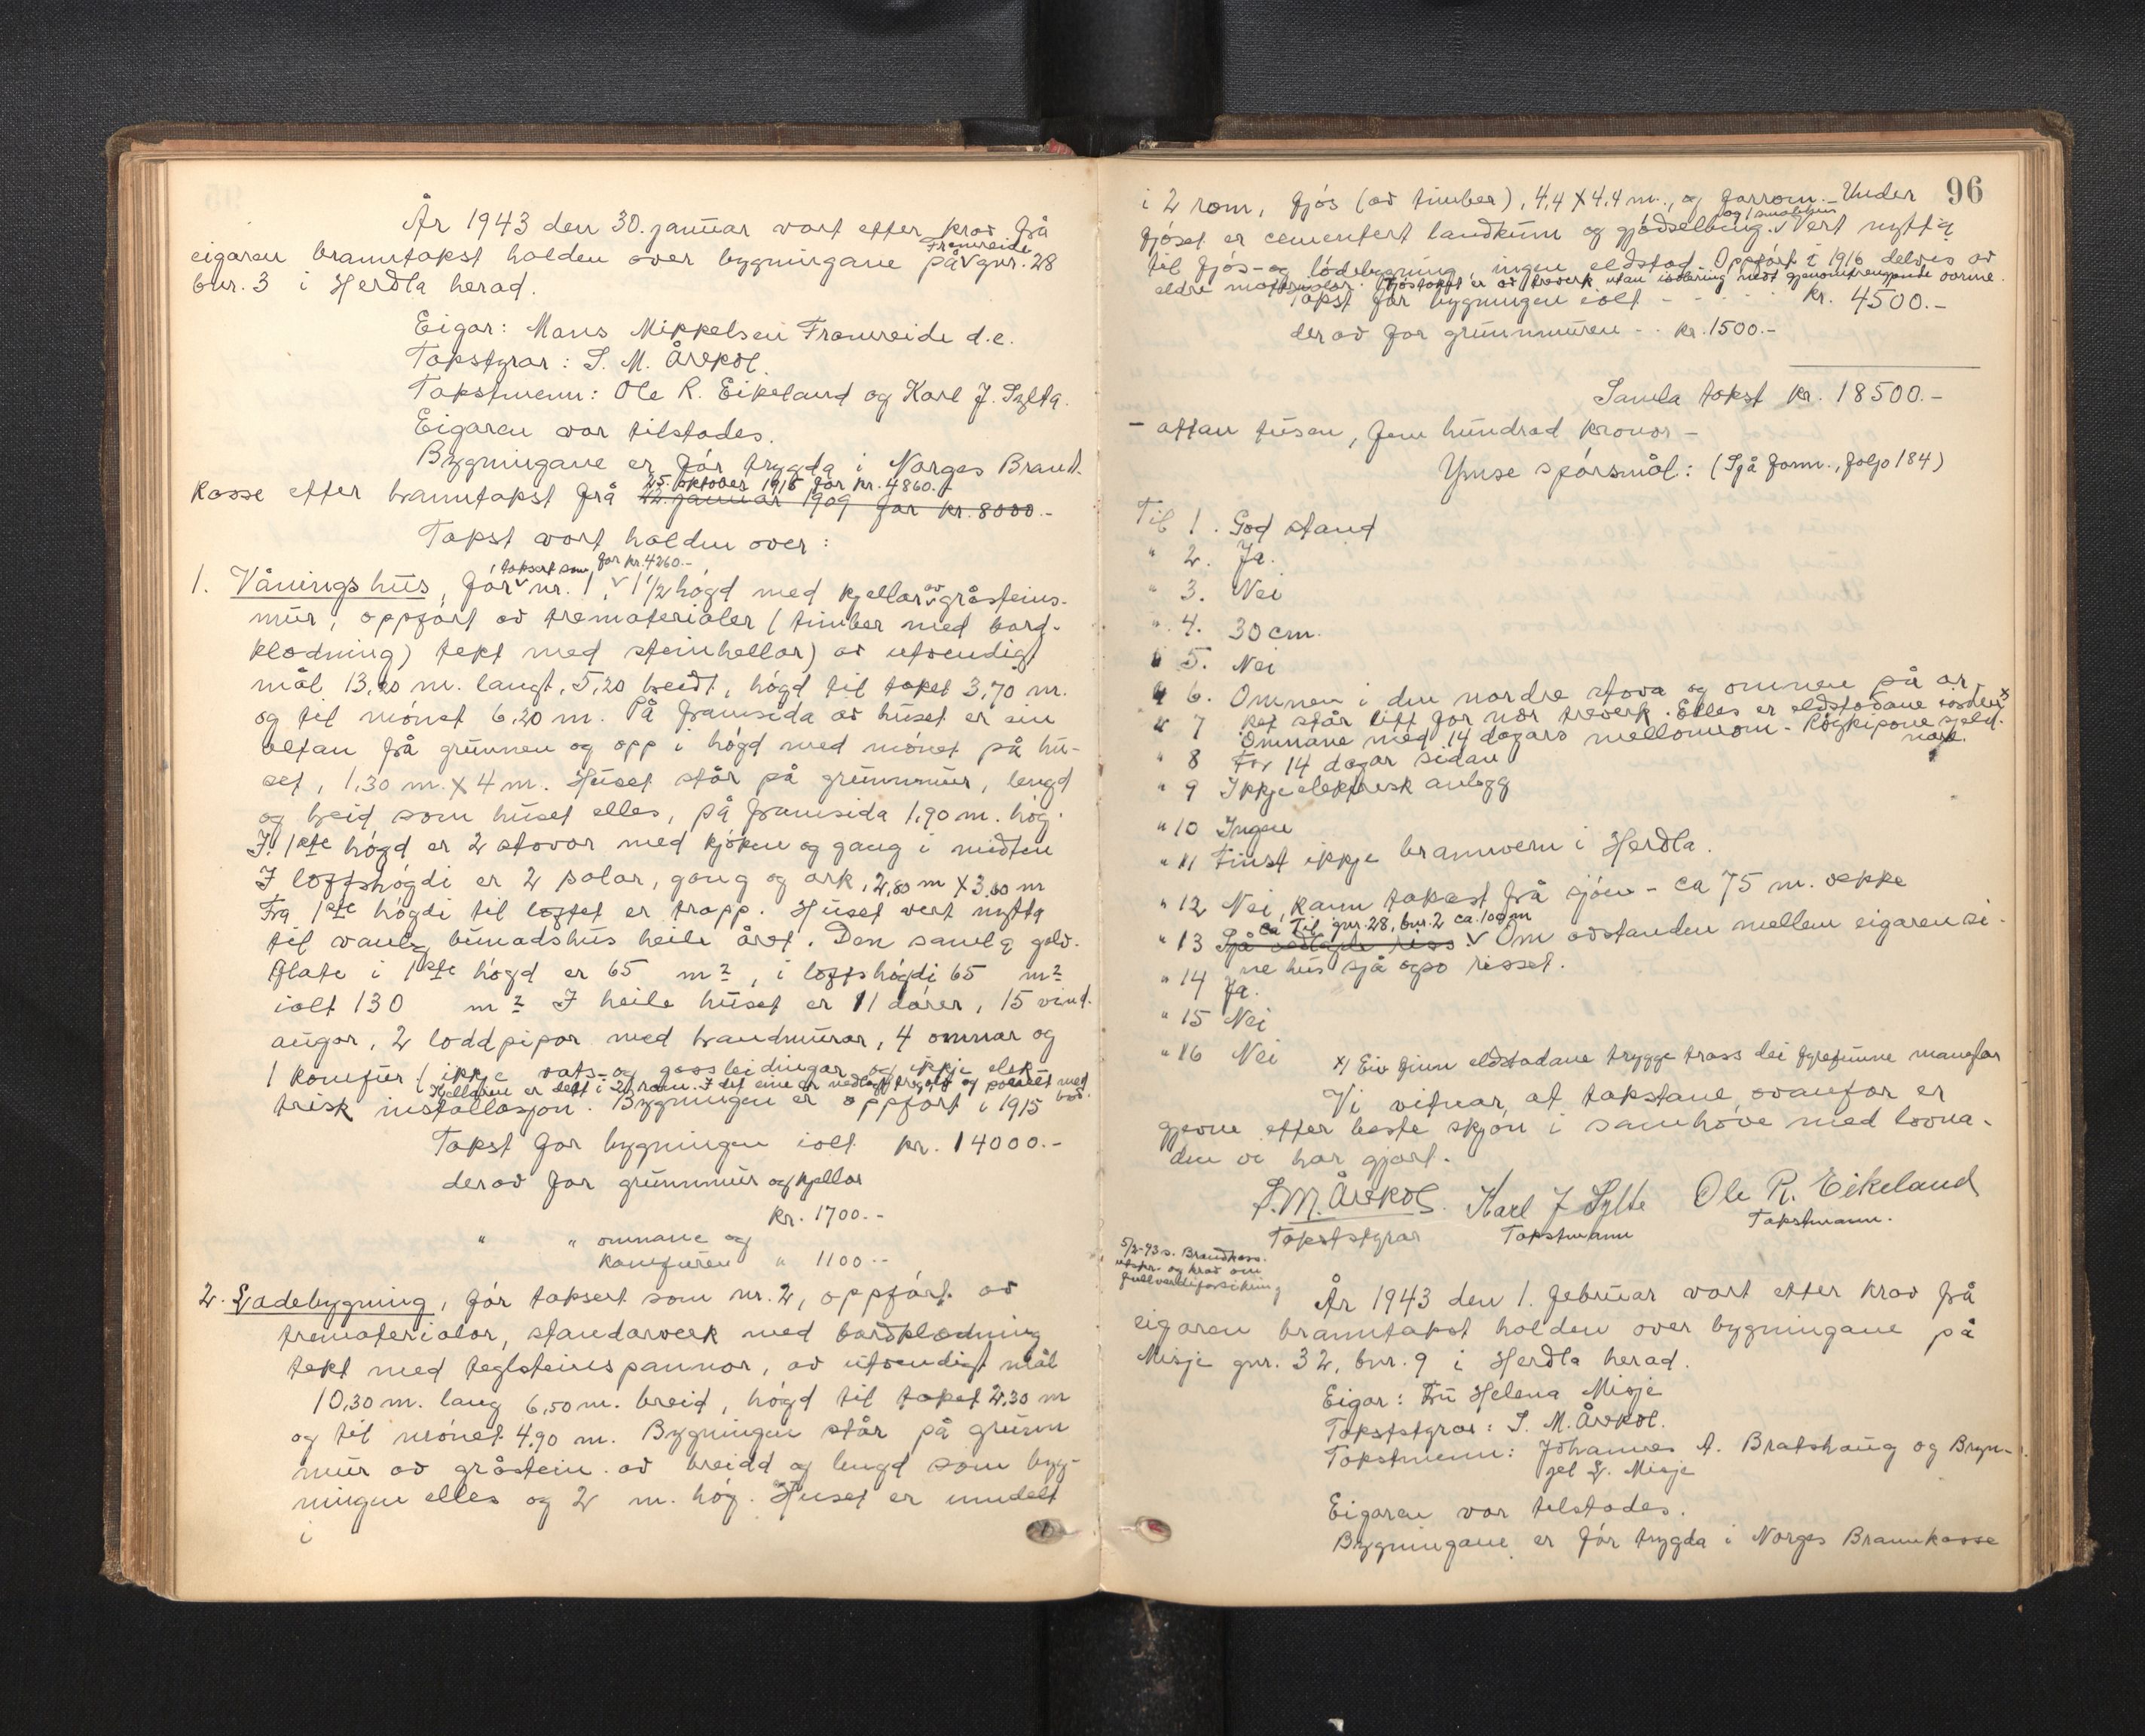 År 1943 den 30. januar vart etter krav frå
eigaren branntakst halden over bygningane på Framreide gnr. 28
bnr. 3 i Herdla herad.
Eigar: Mons Mikkelsen Framreide d.e.
Takstyrar: S. M. Årskol.
Takstmenn: Ole R. Eikeland og Karl J. Sylta.
Eigaren var tilstades.
Bygningane er før trygda i Norges Brand-
kasse etter branntakst frå 22. januar 1909 for kr. 8000.-
25. oktober 1915 for kr. 4860.-
Takst vart halden over:
1. Våningshus, før taksert som nr. 1, for kr. 4260.- 1 1/2 høgd med kjellar av gråsteins-
mur, oppført av trematerialer (timber med bord-
klædning) tekt med steinhellar) av utvendigt
mål 13,20 m. langt, 5,20 breidt, høgd til taket 3,70 m.
og til mønet 6,20 m. På framsida av huset er ein
altan frå grunnen og opp i høgd med mønet på hu-
set, 1,30 m. x 4 m. Huset står på grunnmur, lengd
og breid som huset elles, på framsida 1,90 m. høg.
I 1ste høgd er 2 stovor med kjøken og gang i midten
I loftshøgdi er 2 salar, gang og ark, 2,80 m x 3,00 m
Fra 1ste høgdi til loftet er trapp. Huset vert nytta
til vanleg bunadshus heile året. Den samla golv-
flate i 1ste høgd er 65 m2, i loftshøgdi 65 m2
ialt 130 m2 I heile huset er 11 dører, 15 vind-
augor, 2 loddpipor med brandmurar, 4 omnar og
1 komfur (ikkje vats- og gassleidningar og ikkje elek-
Kjellaren er delt i 2 rom. I det eine er nedlagt tregolv og panelt med bord.
trisk installasjon. Bygningen er oppført i 1915
Takst for bygningen ialt kr. 14000.-
derav for grunnmur og kjellar
kr. 1700.-
" " omnane og
komfuren " 1100.-
2. Ladebygning, før taksert som nr. 2, oppført av
trematerialar, standarverk med bordklædning
tekt med teglsteinspannor, av utvendigt mål
10,30 m. lang 6,50 m. breid, høgd til taket 2,30 m
og til mønet 4,90 m. Bygningen står på grunn
mur av gråstein av breidd og lengd som byg-
ningen elles og 2 m. høg. Huset er inndelt
i
96
i 2 rom, fjøs (av timber), 4,4 x 4,4 m., og forrom. Under
fjøset er cementert landkum og gjødselbing. Vert nyttig
til fjøs- og lødebygning, ingen eldstad. Oppført i 1916 delvis av
eldre materialar. Fjøstaket er av treverk utan isolering mot gjenomtrengande varme.
Takst for bygningen ialt - - - - kr. 4500.-
derav for grunnmuren - - kr. 1500.-
Samla takst kr. 18500.-
- attan tusen, fem hundrad kronor -
Ymse spørsmål: (Sjå form., foljo 184)
Til 1. God stand
" 2. Ja.
" 3. Nei
" 4. 30 cm.
" 5. Nei
" 6. Omnen i den nordre stova og omnen på ar-
ket står litt for nær treverk. Elles er eldstadane i orden x
" 7 Omnane med 14 dagars mellomrom - Røykpipone sjeld-
nare.
" 8 For 14 dagar sidan
" 9 Ikkje elektrisk anlegg
" 10 Ingen
" 11 Finst ikkje brannvern i Herdla.
" 12 Nei, kann takast frå sjøen - ca 75 m. vekke
" 13 Sjå vedlagde riss Ca Til gnr. 28, bnr. 2 ca. 100 m Om avstanden mellem eigaren si-
ne hus sjå også risset.
" 14 Ja.
" 15 Nei
" 16 Nei
x) Ein finn eldstadane trygge trass dei fyrenemne manglar
Vi vitnar at takstane ovanfor er
gjevne etter beste skjøn i samhøve med lovna-
den vi har gjort.
S. M. Årskol. Karl J Sylta Ole R. Eikeland
Takststyrar Takstmann Takstmann.
5/2-43 s. Brandkass.
utskr. og krav om
fullverdiforsikring
År 1943 den 1. februar vart etter krav frå
eigaren branntakst halden over bygningane på
Misje gnr. 32, bnr. 9 i Herdla herad.
Eigar: Fru Helena Misje
Takststyrar: S. M. Årskol.
Takstmenn: Johannes A. Bratshaug og Bryn-
jel L. Misje
Eigaren var tilstades.
Bygningane er før trygda i Norges Brannkasse